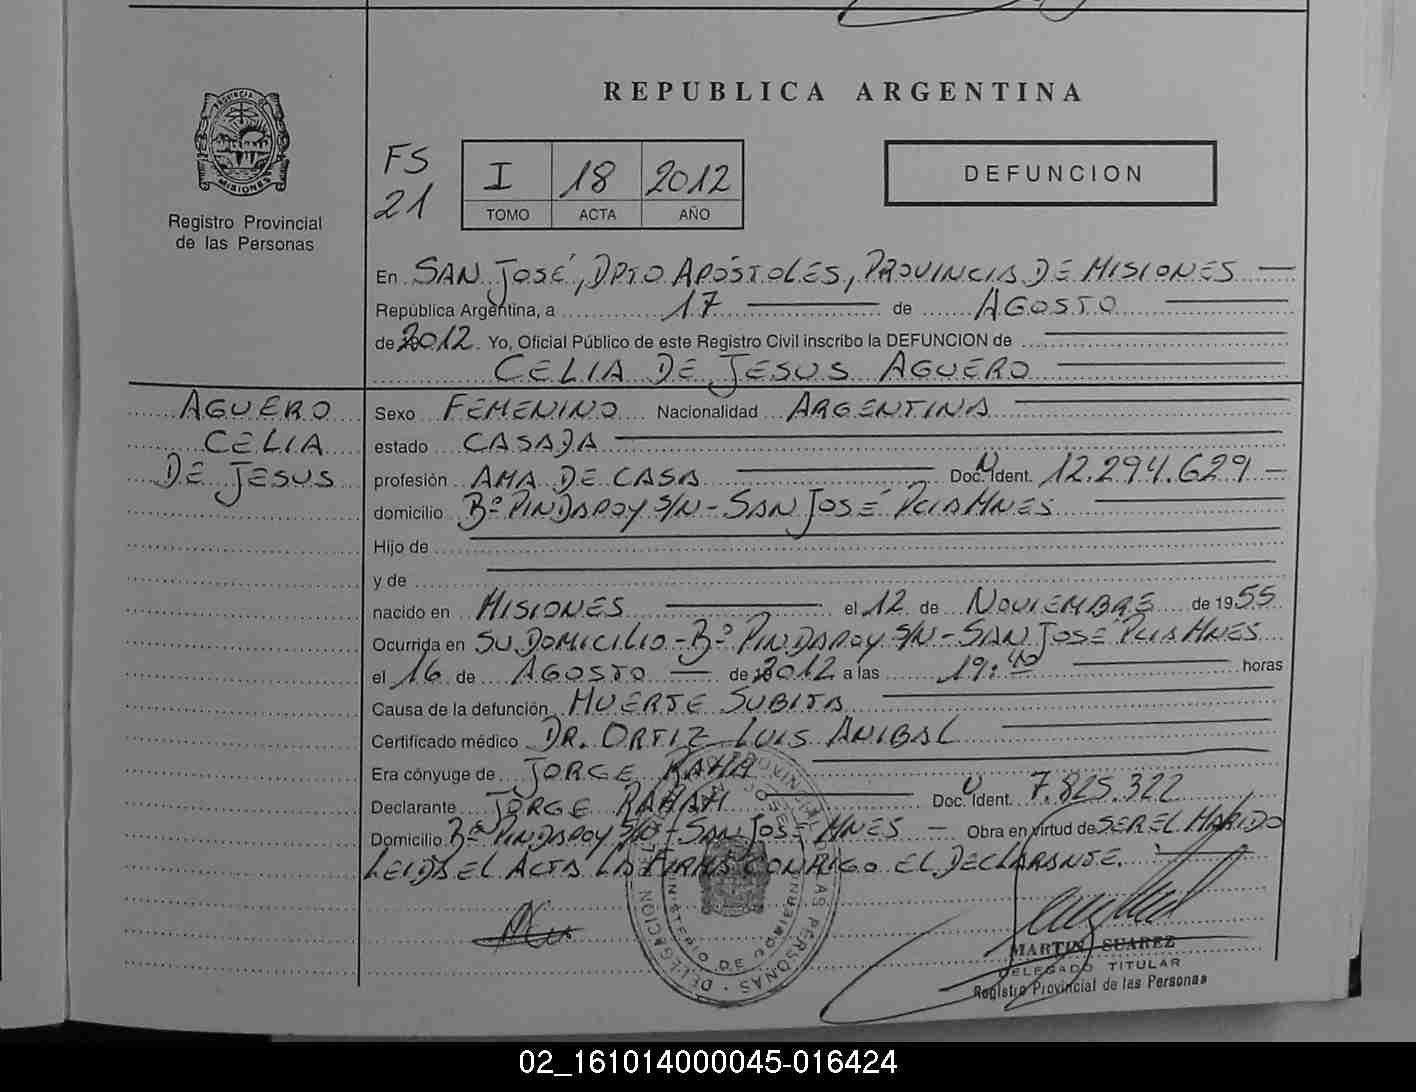 REPUBLICA ARGENTINA
PROVINCIA DE
MISIONES
Registro Provincial
de las Personas
FS
21
I 18 2012
TOMO ACTA AÑO
DEFUNCION
En SAN JOSÉ, DPTO APÓSTOLES, PROVINCIA DE MISIONES
República Argentina, a 17 de AGOSTO
de 2012. Yo, Oficial Público de este Registro Civil inscribo la DEFUNCION de
CELIA DE JESUS AGUERO
AGUERO
CELIA
DE JESUS
Sexo FEMENINO Nacionalidad ARGENTINA
estado CASADA
profesión AMA DE CASA Doc. Ident. 12.294.629
domicilio Bº PINDAPOY S/N - SAN JOSÉ PCIA MNES
Hijo de
y de
nacido en MISIONES el 12 de NOVIEMBRE de 1955
Ocurrida en SU DOMICILIO - Bº PINDAPOY S/N - SAN JOSÉ PCIA MNES
el 16 de AGOSTO de 2012 a las 19:40 horas
Causa de la defunción MUERTE SUBITA
Certificado médico DR. ORTIZ LUIS ANIBAL
Era cónyuge de JORGE
Declarante JORGE Doc. Ident. 7.825.322
Domicilio Bº PINDAPOY S/N - SAN JOSÉ MNES - Obra en virtud de SER EL MARIDO
LEIDA EL ACTA LA FIRMA CONMIGO EL DECLARANTE.
MINISTERIO DE GOBIERNO
PERSONAS - DELEGACION
MARTIN SUAREZ
DELEGADO TITULAR
Registro Provincial de las Personas
02_161014000045-016424